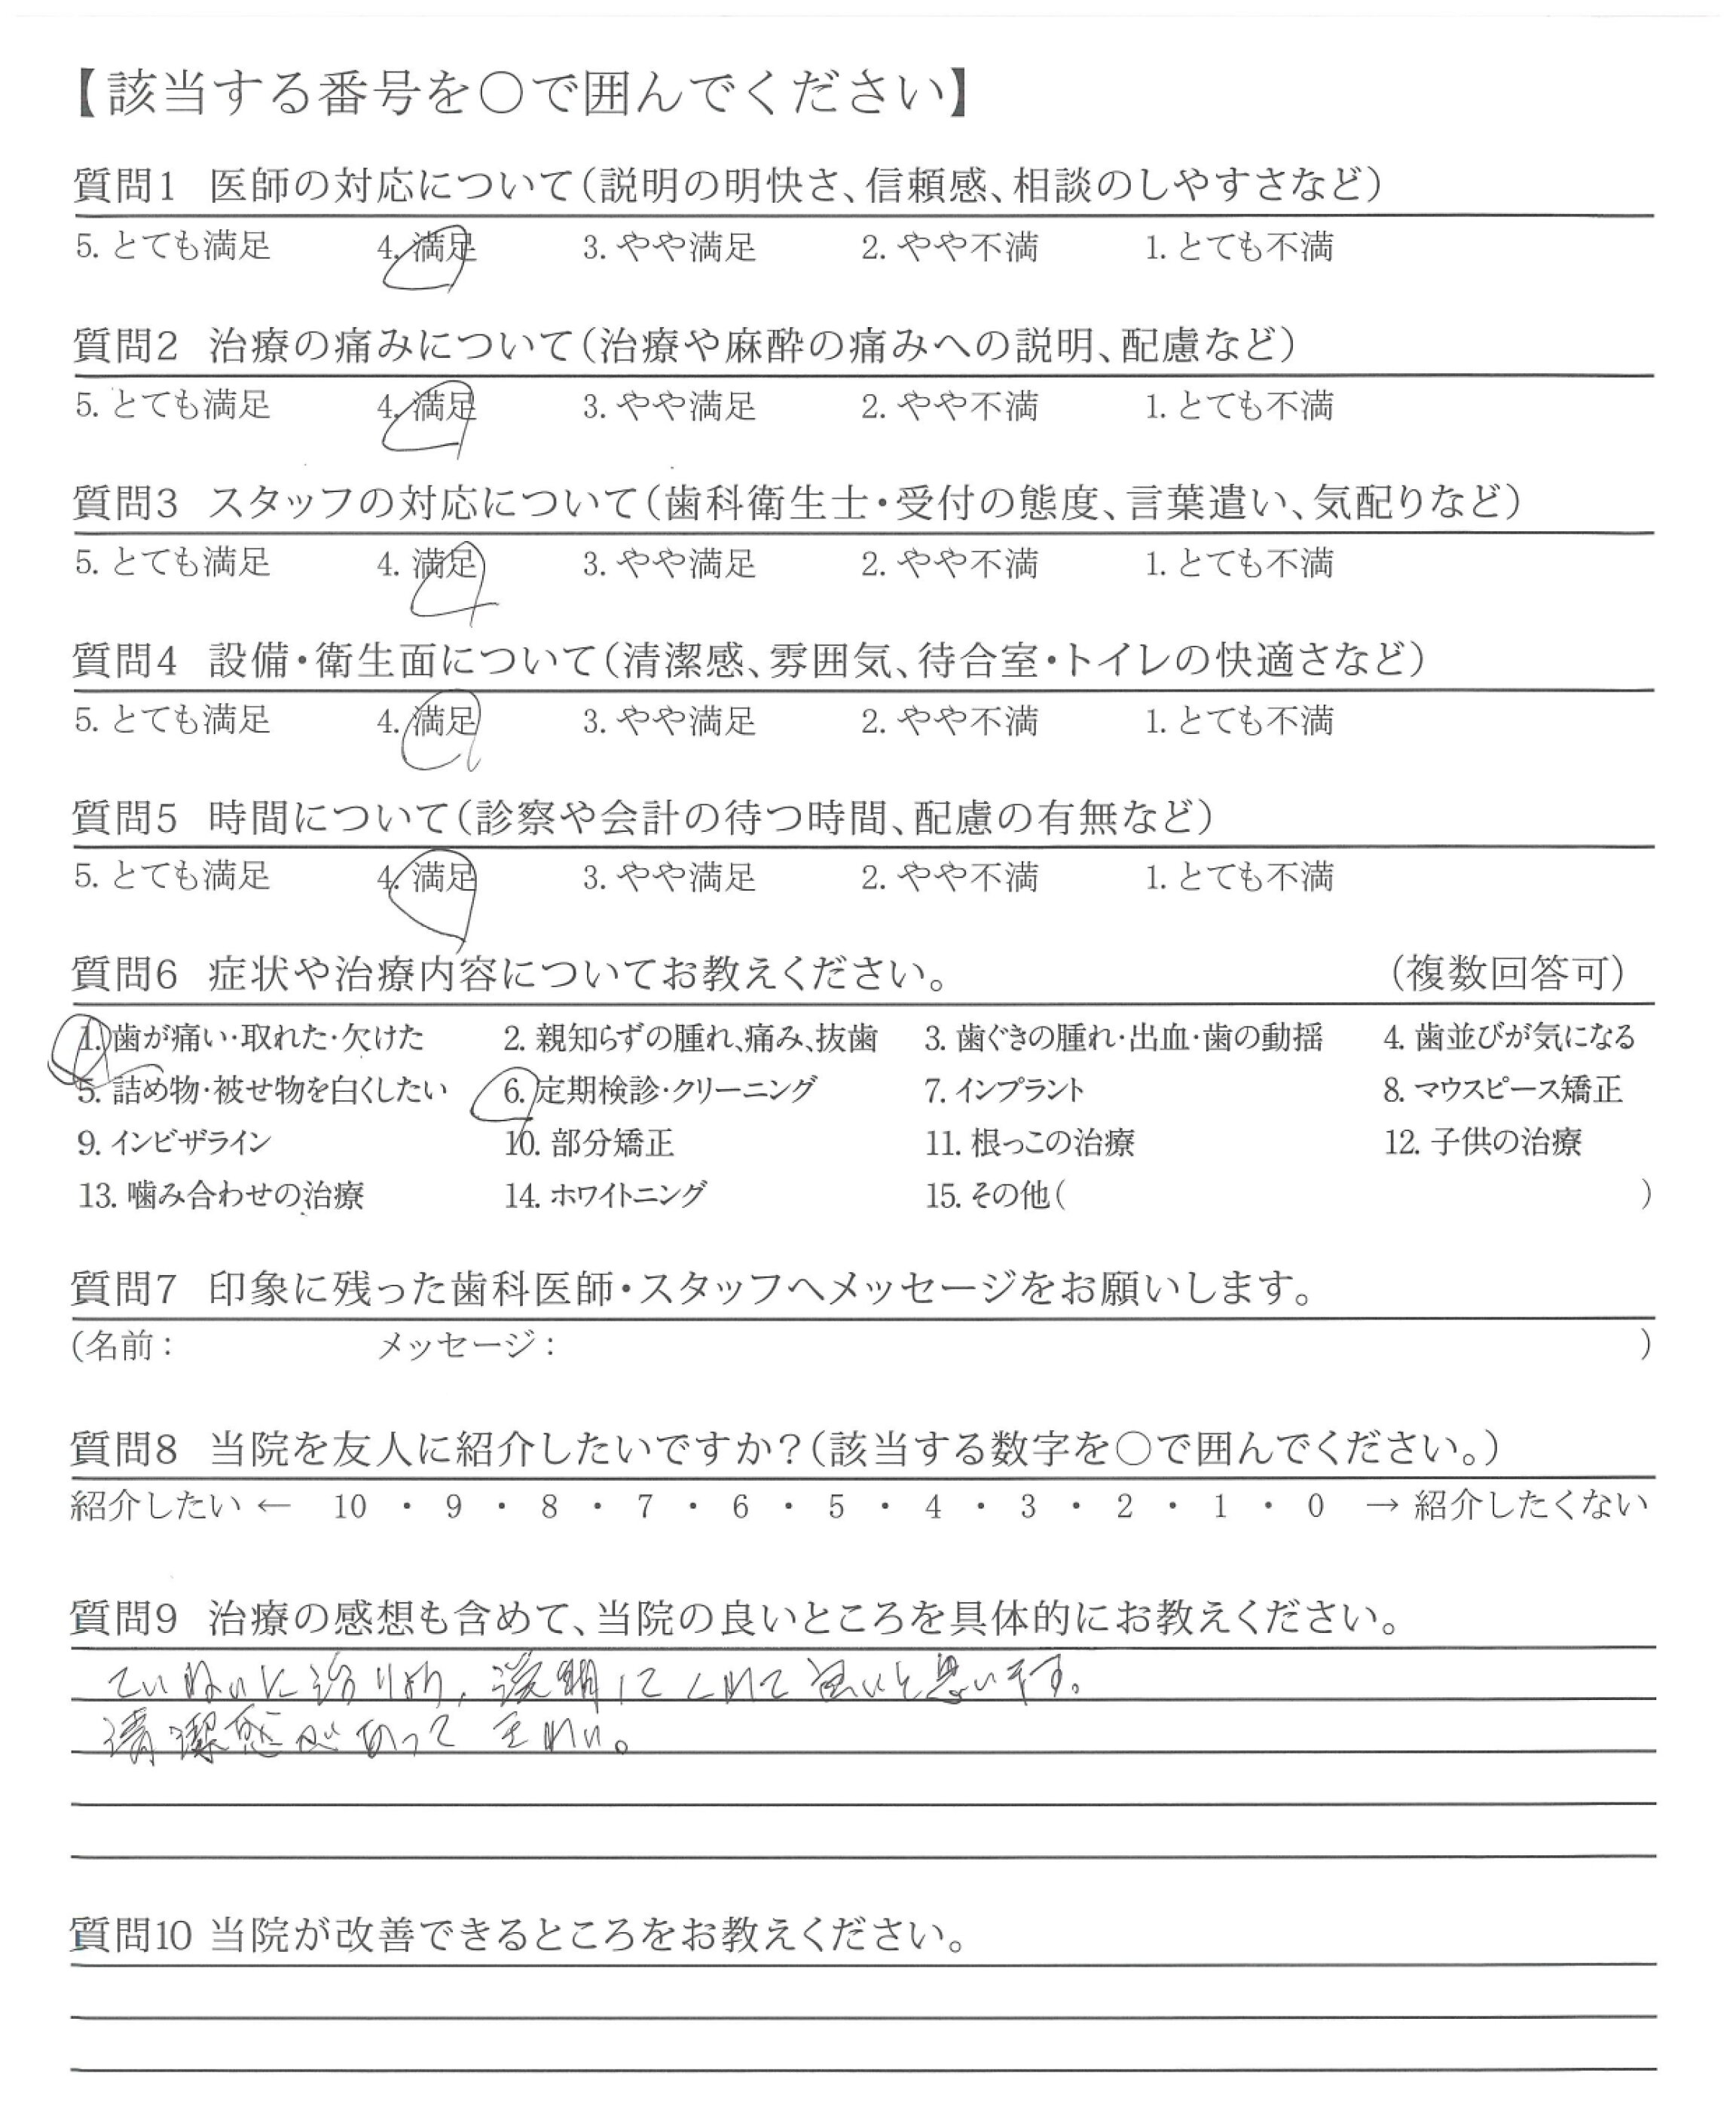 【該当する番号を○で囲んでください】
質問1 医師の対応について(説明の明快さ、信頼感、相談のしやすさなど)
5. とても満足 4. 満足 3. やや満足 2. やや不満 1. とても不満
質問2 治療の痛みについて(治療や麻酔の痛みへの説明、配慮など)
5. とても満足 4. 満足 3. やや満足 2. やや不満 1. とても不満
質問3 スタッフの対応について(歯科衛生士・受付の態度、言葉遣い、気配りなど)
5. とても満足 4. 満足 3. やや満足 2. やや不満 1. とても不満
質問4 設備・衛生面について(清潔感、雰囲気、待合室・トイレの快適さなど)
5. とても満足 4. 満足 3. やや満足 2. やや不満 1. とても不満
質問5 時間について(診察や会計の待つ時間、配慮の有無など)
5. とても満足 4. 満足 3. やや満足 2. やや不満 1. とても不満
質問6 症状や治療内容についてお教えください。 (複数回答可)
1. 歯が痛い・取れた・欠けた 2. 親知らずの腫れ、痛み、抜歯 3. 歯ぐきの腫れ・出血・歯の動揺 4. 歯並びが気になる
5. 詰め物・被せ物を白くしたい 6. 定期検診・クリーニング 7. インプラント 8. マウスピース矯正
9. インビザライン 10. 部分矯正 11. 根っこの治療 12. 子供の治療
13. 噛み合わせの治療 14. ホワイトニング 15. その他( )
質問7 印象に残った歯科医師・スタッフへメッセージをお願いします。
(名前: メッセージ: )
質問8 当院を友人に紹介したいですか?(該当する数字を○で囲んでください。)
紹介したい ← 10 ・ 9 ・ 8 ・ 7 ・ 6 ・ 5 ・ 4 ・ 3 ・ 2 ・ 1 ・ 0 → 紹介したくない
質問9 治療の感想も含めて、当院の良いところを具体的にお教えください。
ていねいに治りょう、説明してくれて良いと思います。
清潔感があって きれい。
質問10 当院が改善できるところをお教えください。